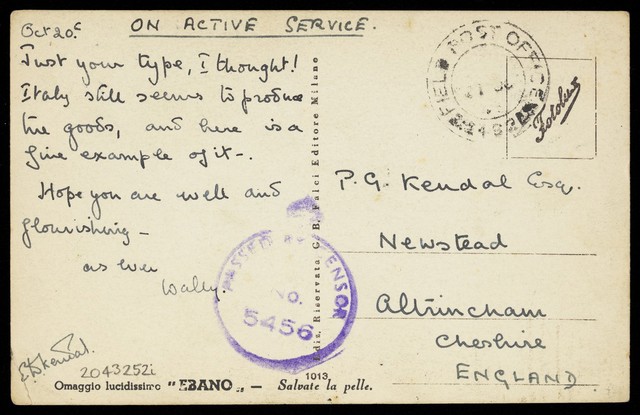 Oct 20.
ON ACTIVE SERVICE.
Just your type, I thought!
Italy still seems to produce
the goods, and here is a
fine example of it -.
Hope you are well and
flourishing -
as ever
Wally.
FIELD POST OFFICE
Fotolux
P. G. Kendal Esq.
Newstead
Altrincham
Cheshire
ENGLAND
PASSED BY CENSOR
No.
5456
Ediz. Riservata C. B. Falci Editore Milano
Kendal.
2043252i
1013
Omaggio lucidissimo "EBANO" — Salvate la pelle.